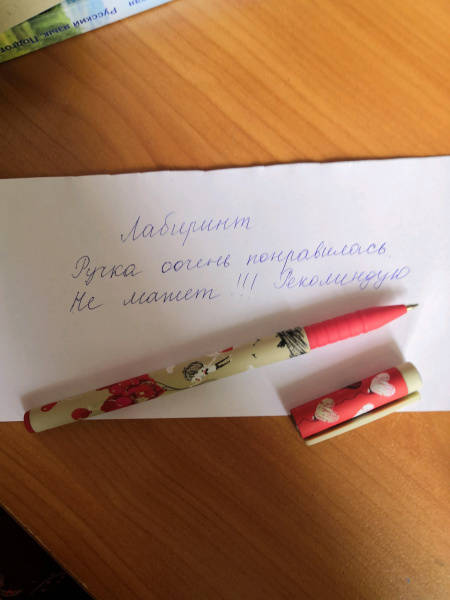 ская Русский язык. Подгот
Лабиринт
Ручка оочень понравилась.
Не мажет !!! Рекоминдую